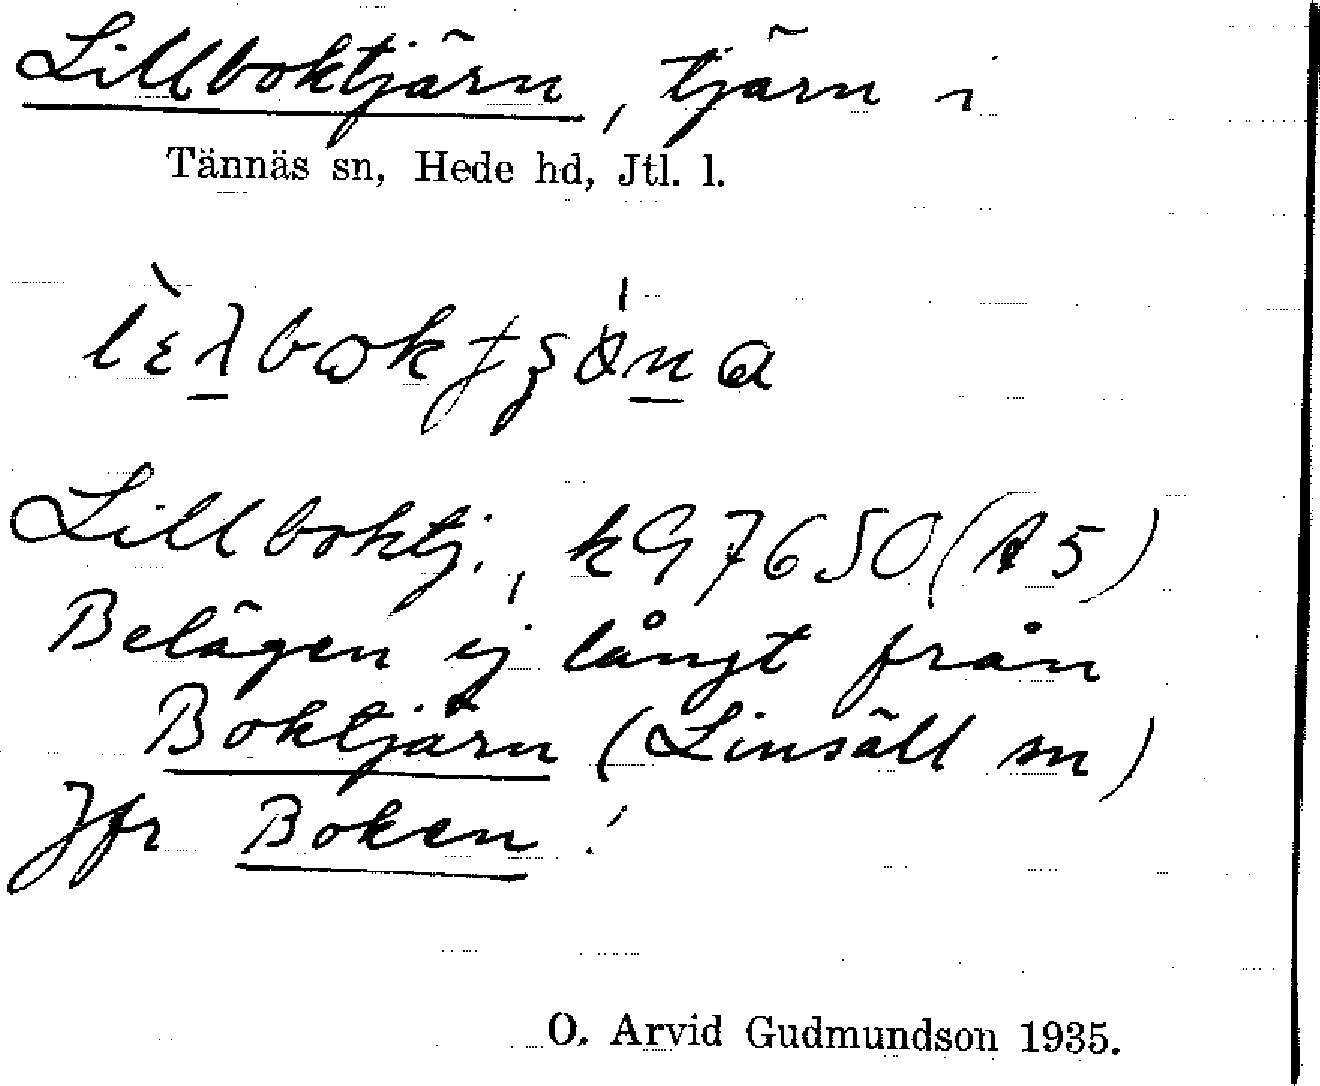 Lillboktjärn, tjärn i
Tännäs sn, Hede hd, Jtl. l.
Lillboktj., kG7650(A5)
Belägen ej långt från
Boktjärn (Linsäll sn)
Jfr Boken!
O. Arvid Gudmundson 1935.